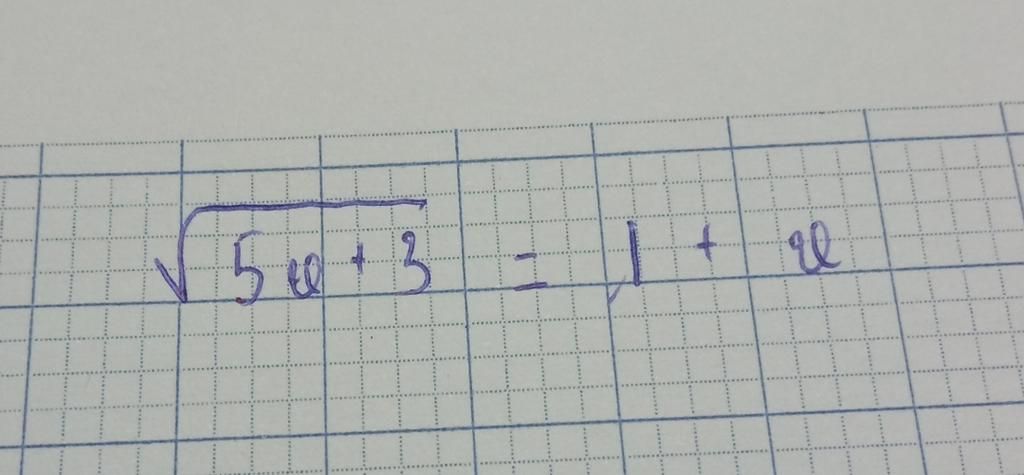 √(5x + 3) = 1 + x